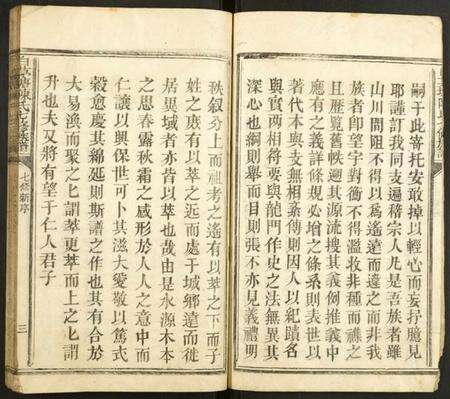 嗣于此寄托安敢掉以輕心而妄抒臆見
耶謹訂我同支遍稽宗人凡是吾族者雖
山川間阻不得以為遙遠而遺之而非我
族者即望宇對衡不得濫收非種而禩之
且歷覽舊帙遡其源流搜其義例推義中
應有之義詳條規必增之條系則表世以
著代本與支無相紊傳則因人以紀蹟名
與實兩相得舉要與龍門作史之法無異其
深心也綱與而目則張不亦見義禮明
秩叙分上而祖考之遙有以萃之下而子
姓之庶有以萃之近而處于城鄉遠而徙
居異域者亦皆有以萃也哉由是水源木本
之思春露秋霜之感形於人人之意中而
仁讓以興保世可卜其滋大愛敬以篤式
穀愈慶其綿延則斯譜之作也其有合於
大易渙而聚之匕謂萃更萃而上之匕謂
升也夫又將有望于仁人君子
七修新序
三